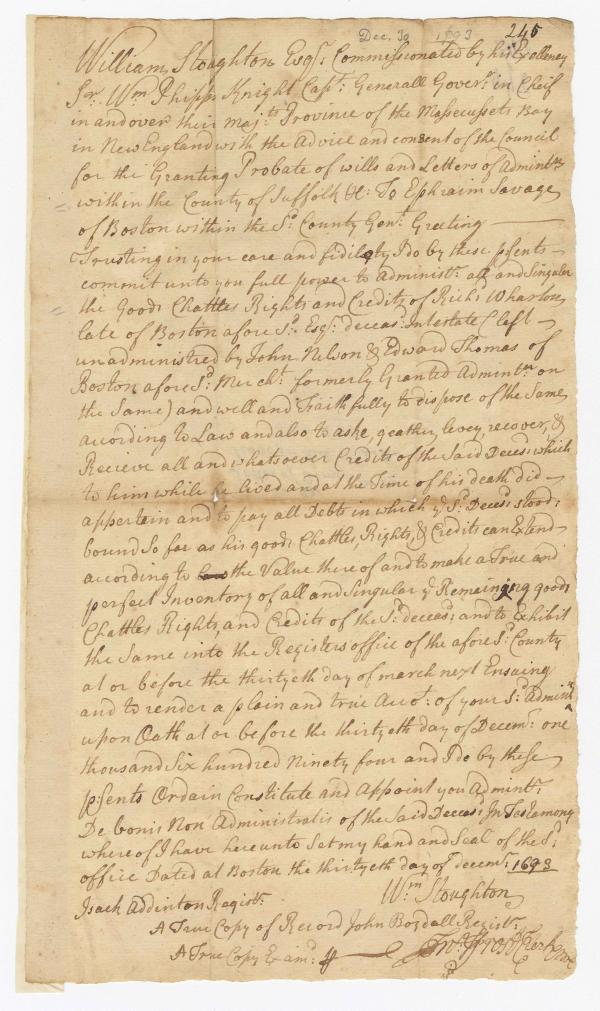 Dec. 30 1693 245
William Stoughton Esqr. Commissionated by his Exelleney
Sr. Wm Phipps Knight Capt. Generall Goverr. in Cheif
in and over their Majts Province of the Massecussets Bay
in New England with the Advice and consent of the Council
for the Granting Probate of wills and Letters of Admintn
within the County of Suffolk &c: To Ephraim Savage
of Boston within the Sd. County Gent. Greeting
Trusting in your care and fidility I do by these psents
commit unto you full power to Administr. all and Singular
the Goods Chattles Rights and Credits of Richd. Wharton
late of Boston afore Sd. Esqr. deceasd. Intestate (left
unadministred by John Nelson & Edward Thomas of
Boston afore Sd. Mercht. formerly Granted Admintn. on
the Same) and well and Faithfully to dispose of the Same
according to Law and also to aske, geather, levey, recover, &
Recieve all and whatsoever Credits of the Said Deceds. which
to him while he lived and at the Time of his death did
appertain and to pay all Debts in which ye Sd. Decesd. stood
bound So far as his goods Chattles, Rights, & Credits can Extend
according to the Value there of and to make a True and
perfect Inventory of all and Singular ye Remaining goods
Chattles Rights, and Credits of the Sd. decesd: and to Exhibit
the Same into the Registers office of the afore Sd. County
at or before the thirtyeth day of march next Ensuing
and to render a plain and true Acct. of your Sd. Adminn
upon Oath at or before the thirtyeth day of Decemr. one
thousand Six hundred Ninety four and I do by these
psents Ordain Constitute and Appoint you Admintr.
De bonis Non Administratis of the Said Decesd: In Testamony
where of I have here unto Set my hand and Seal of the Sd.
office Dated at Boston the thirtyeth day of decemr. 1693
Wm. Stoughton
Isack Addinton Registr.
A True Copy of Record John Boydall Registr.
A True Copy Examd: